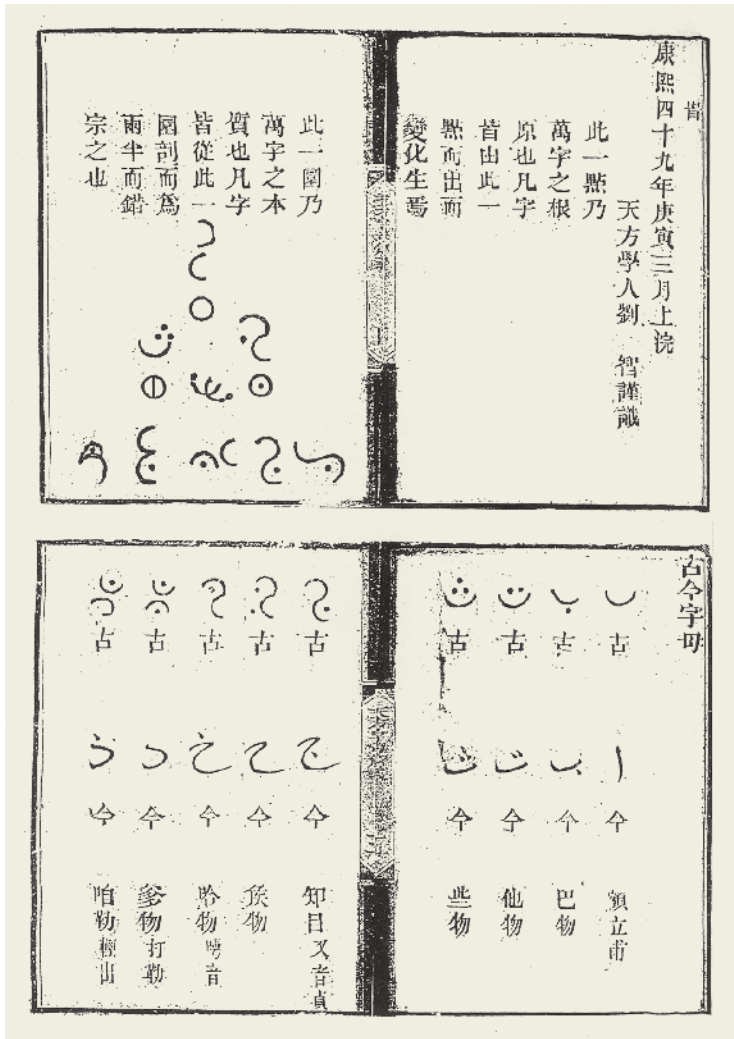 旹
康熙四十九年庚寅三月上浣
天方學人劉 智謹識
此一點乃
萬字之根
原也凡字
皆由此一
點而出而
變化生焉
此一圓乃
萬字之本
質也凡字
皆從此一
圓剖而爲
兩半而錯
宗之也
古今字母
古 ا 今 額立甫
古 ب 今 巴物
古 今 他物
古 今 些物
天方字母解義
古 ج 今 知目又音貞
古 ح 今 物
古 خ 今 哈物 音
古 د 今 爹物打勒
古 ذ 今 咱勒輕出